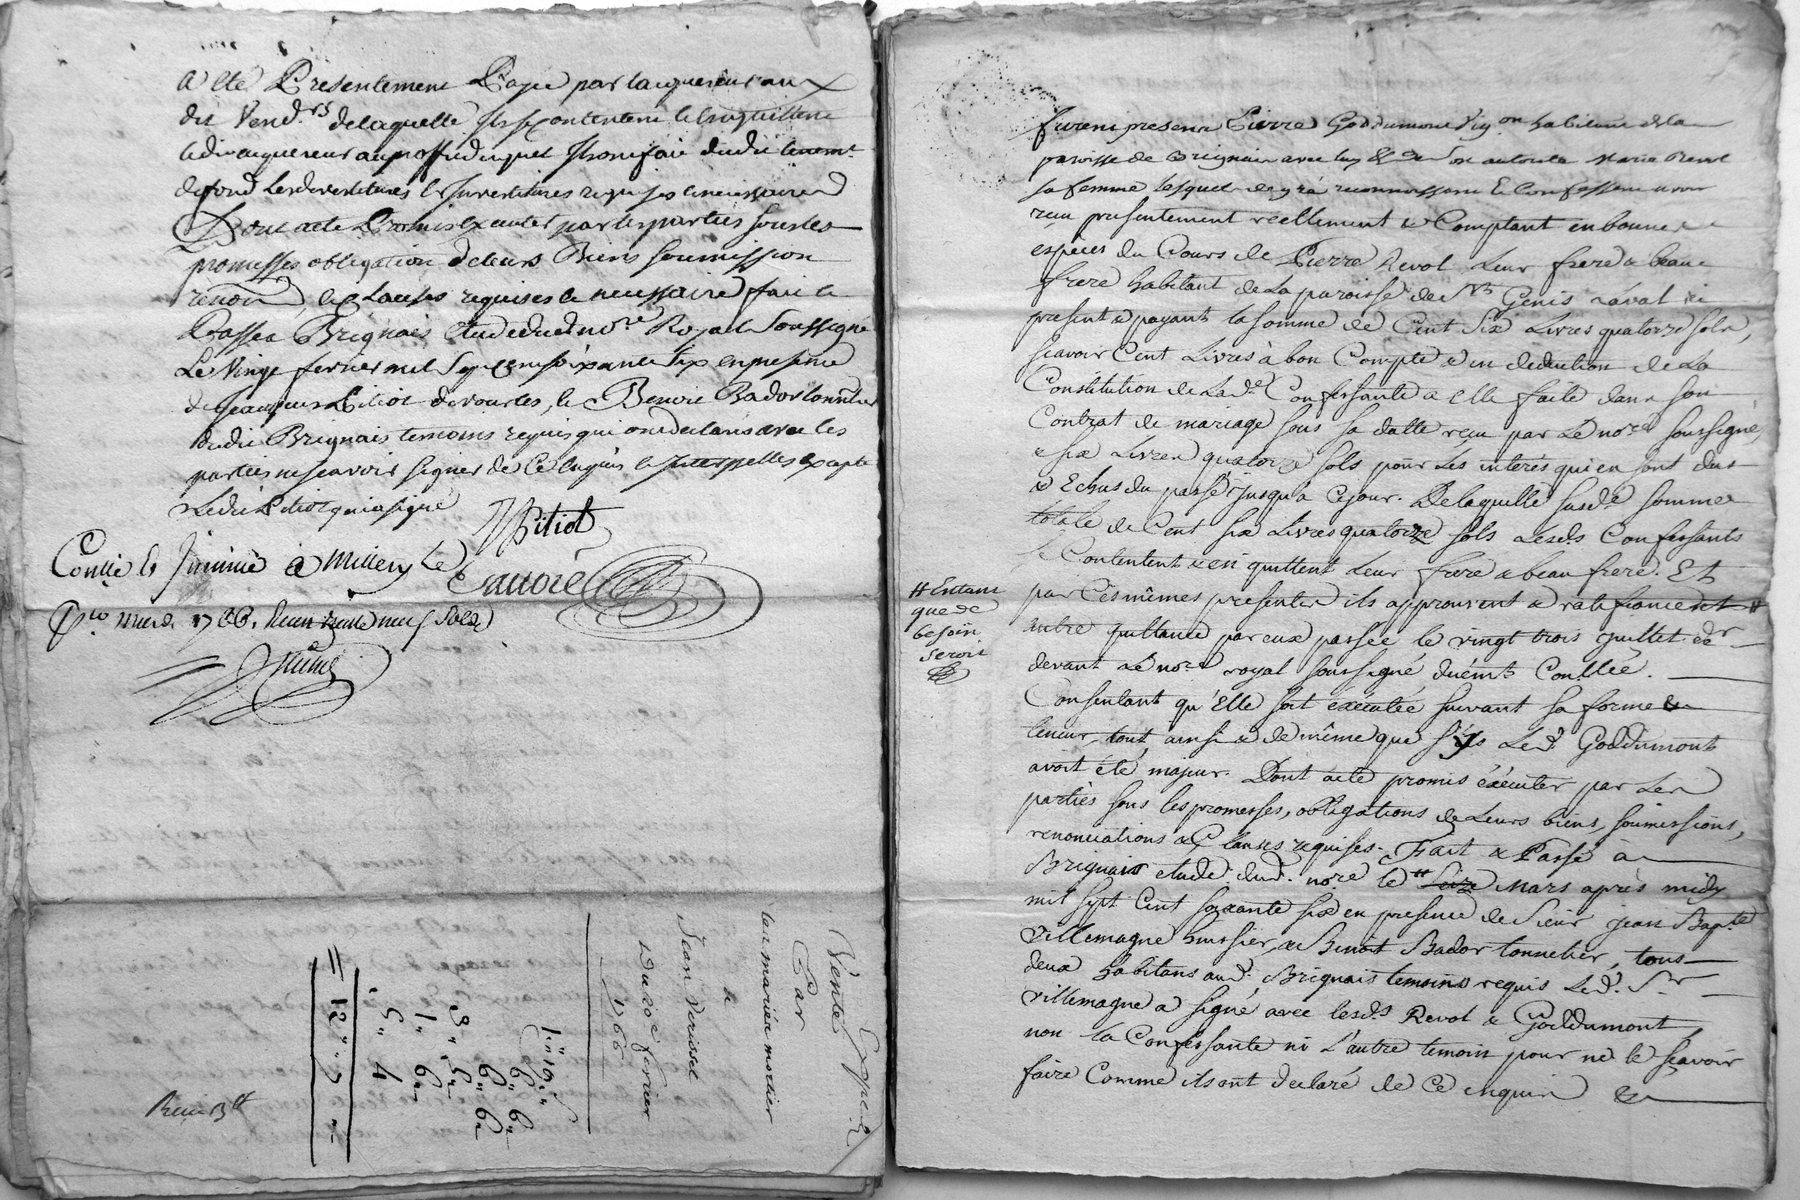 a été Presentement Payée par lacquereur aux
dit Vend.rs delaquelle ils se contentent & lenquittent
ledit acquereur
de fond Les devestitures & Investitures requises & necessaires
Dont acte Promis executer par les parties sous les
promesses obligation de leurs Biens soumission
renon. & clauses requises & necessaires fait &
Passé a Brignais Etude dud. no.re Royal Soussigné
Le Vingt fevrier mil sept cent soixante six en presence
de Jacques Pitiot de vourles, & Benoit Bador tonnelier
dudit Brignais temoins requis qui ont declaré avec les
parties ne scavoir signer de ce enquis & Interpellés excepté
Ledit Pitiot qui a signé
JPitiot
Con.lé & Insinué a Millery Le
1766. neuf Sols
furent presents Pierre Goddumont Vig.on habitant de la
paroisse de Brignais avec luy & de son autorité Marie Revol
sa femme lesquels de gré reconnoissent & Confessent avoir
reçu presentement reellement & Comptant en bonnes
espèces du Cours de Pierre Revol Leur frere & beau
frere habitant de La paroisse de St Genis Laval ici
present & payant la somme de Cent Six Livres quatorze sols,
sçavoir Cent Livres à bon Compte & en deduction de La
Constitution de Lad.e Confessante a elle faite dans son
Contrat de mariage sous sa datte reçu par Le no.re soussigné,
& six Livres quatorze sols pour Les interés qui en sont dus
& Echus du passé jusqu'a Cejour. De laquelle susd.e somme
totale de Cent six Livres quatorze sols Lesd.s Confessants
se Contentent & en quittent Leur frere & beau frere. Et
par Ces mêmes presentes ils approuvent & ratifient
# Entant
que de
besoin
seroit
autre quittance par eux passée le vingt trois juillet der
devant Le no.re royal soussigné duëmt Con.llée.
Consentant qu'Elle soit éxécutée suivant sa forme &
teneur, tout ainsi & de même que si Led. Goddumont
avoit été majeur. Dont acte promis éxécuter par Les
parties sous les promesses, obligations de Leurs biens, soumissions,
renonciations & Clauses requises. Fait & Passé à
Brignais etude dud. no.re le # Seize Mars après midy
mil sept Cent soixante six en presence de Sieur jean Bap.te
Villemagne huissier, & Benoit Bador tonnelier, tous
deux habitans aud. Brignais temoins requis Led. Sr
Villemagne a signé avec lesd.s Revol & Goddumont
non la Confessante ni L'autre temoin pour ne le sçavoir
faire Comme ils ont declaré de Ce enquis &
Vente
Par
les mariés mortier
a
Jean Verisset
Du 20e fevrier
1766
Expée
= 12 " 7 "
Reçu 13 tt